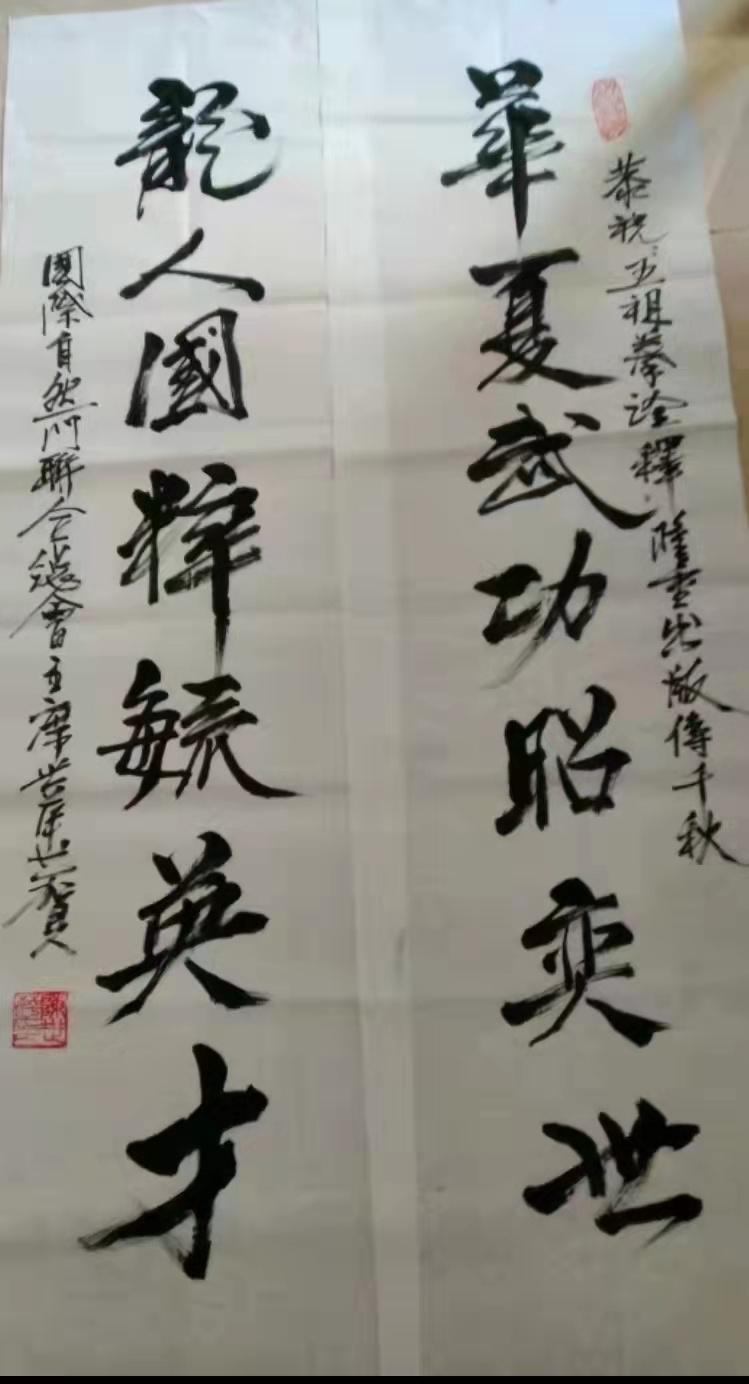 恭祝：五祖拳诠釋：隆重出版傳千秋
華夏武功昭奕世
龍人國粹毓英才
國際自然门聯合總會主席